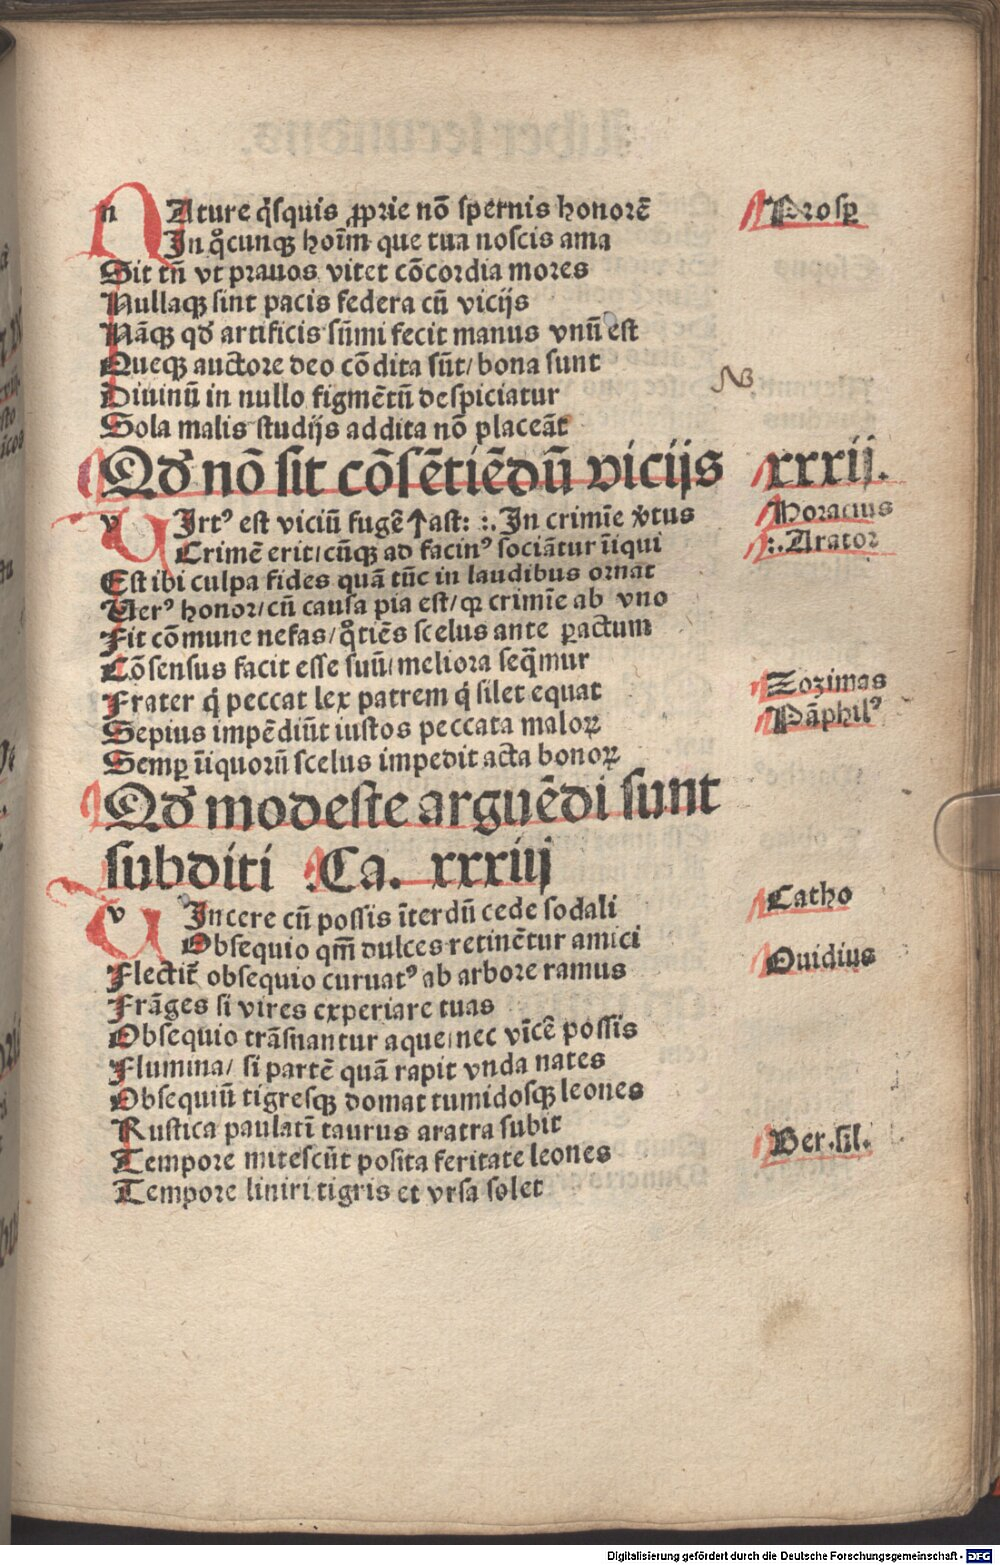 nAture q̄squis ꝓprie nō spernis honorē Prosꝑ
In qͦcunqꝫ hoīm que tua noscis ama
Sit tn̄ vt prauos vitet cōcordia mores
Nullaqꝫ sint pacis federa cū vicijs
Nāqꝫ qd artificis sūmi fecit manus vnū est
Queqꝫ auctore deo cōdita sūt/ bona sunt
Diuinū in nullo figmētū despiciatur
Sola malis studijs addita nō placeāt
Qd nō sit cōsētiēdū vicijs xxxij.
vIrtꝰ est viciū fugē ↑ast: :. In crimīe v̓tus Horacius
Crimē erit/ cūqꝫ ad facinꝰ sociātur īiqui :. Arator
Est ibi culpa fides quā tūc in laudibus ornat
Uerꝰ honor/ cū causa pia est/ qꝛ crimīe ab vno
Fit cōmune nefas/ qͦtiēs scelus ante ꝑactum
Cōsensus facit esse suū/ meliora seq̄mur
Frater q̇ peccat lex patrem q̇ silet equat Zozimas
Sepius impēdiūt iustos peccata maloꝝ Pāphilꝰ
Semꝑ īiquorū scelus impedit acta bonoꝝ
Qd modeste arguēdi sunt
subditi :Ca. xxxiij
vIncere cū possis īterdū cede sodali Catho
Obsequio qm̄ dulces retinētur amici
Flectit̄ obsequio curuatꝰ ab arbore ramus Ouidius
Frāges si vires experiare tuas
Obsequio trāsnantur aque/ nec vīcē possis
Flumina/ si partē quā rapit vnda nates
Obsequiū tigresqꝫ domat tumidosqꝫ leones
Rustica paulatī taurus aratra subit
Tempore mitescūt posita feritate leones Ber.sil.
Tempore liniri tigris et vrsa solet
NB
Digitalisierung gefördert durch die Deutsche Forschungsgemeinschaft - DFG